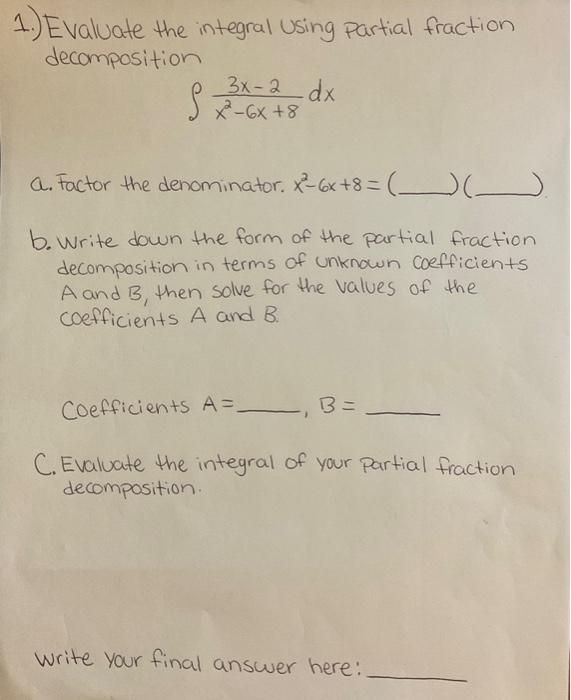 1.) Evaluate the integral Using partial fraction
decomposition
∫ (3x-2)/(x²-6x+8) dx
a. Factor the denominator. x²-6x+8 = (____)(____).
b. Write down the form of the partial fraction
decomposition in terms of unknown coefficients
A and B, then solve for the values of the
coefficients A and B.
Coefficients A=____, B = ____
C. Evaluate the integral of your partial fraction
decomposition.
Write your final answer here: ____